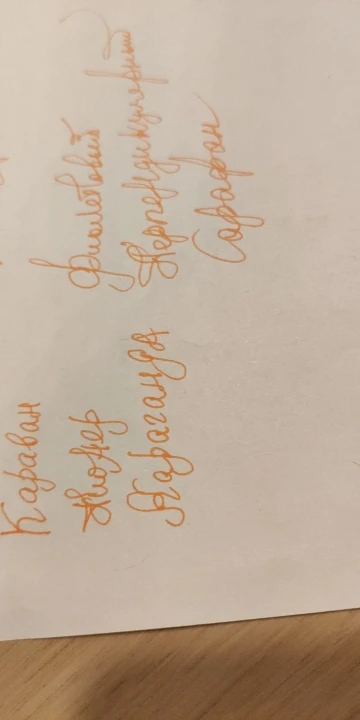 Караван
Пионер
Параганда
Фиолетовый
Перпендикулярный
Сарафан